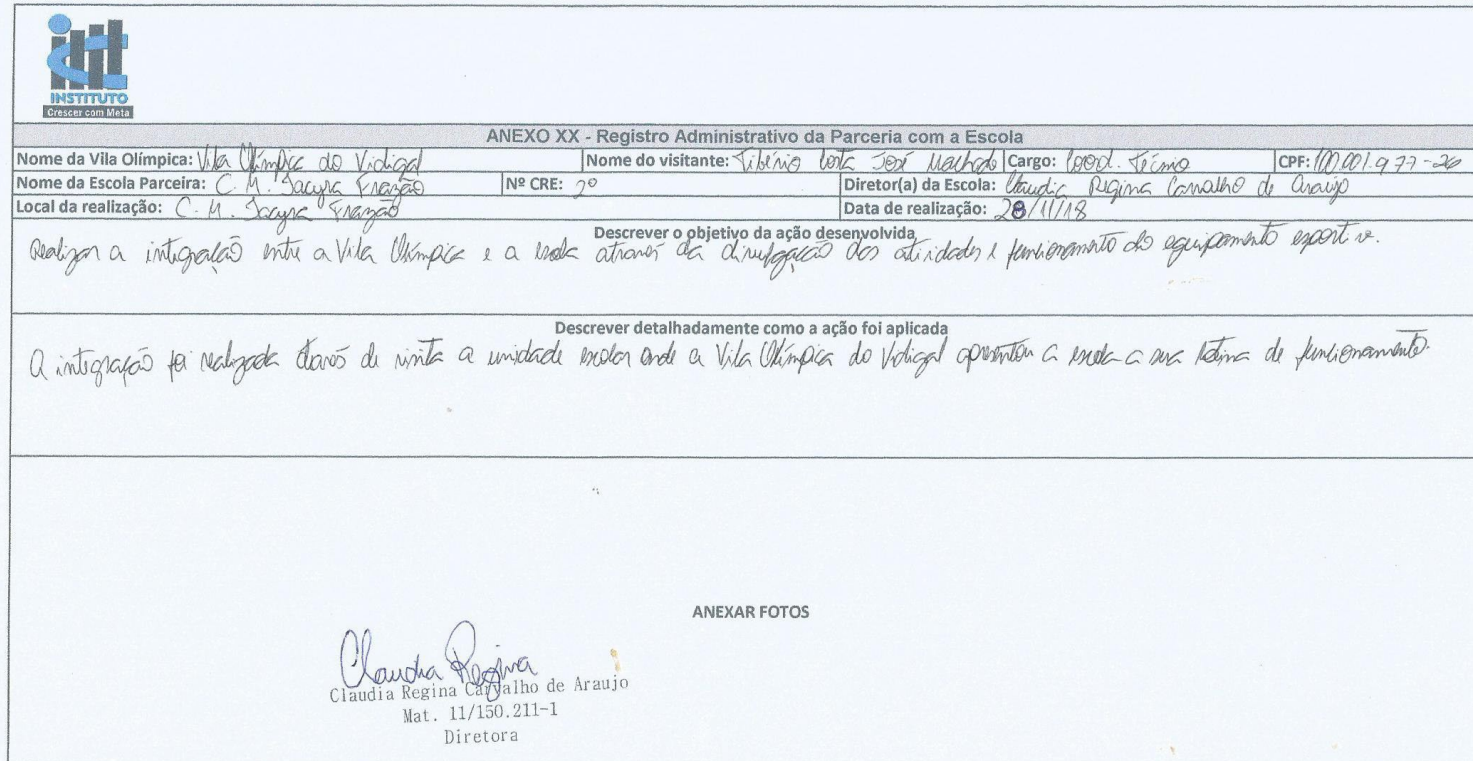 INSTITUTO
Crescer com Meta
ANEXO XX - Registro Administrativo da Parceria com a Escola
Nome da Vila Olímpica: Vila Olímpica do Vidigal Nome do visitante: Tibério Costa José Machado Cargo: Coord. Técnico CPF: 100.001.977-26
Nome da Escola Parceira: C. M. Jacyra Frazão Nº CRE: 2º Diretor(a) da Escola: Claudia Regina Carvalho de Araújo
Local da realização: C. M. Jacyra Frazão Data de realização: 28/11/18
Descrever o objetivo da ação desenvolvida
Realizar a integração entre a Vila Olímpica e a escola através da divulgação das atividades e funcionamento do equipamento esportivo.
Descrever detalhadamente como a ação foi aplicada
A integração foi realizada através de visita a unidade escolar onde a Vila Olímpica do Vidigal apresentou a escola a sua rotina de funcionamento.
ANEXAR FOTOS
Claudia Regina
Claudia Regina Carvalho de Araujo
Mat. 11/150.211-1
Diretora